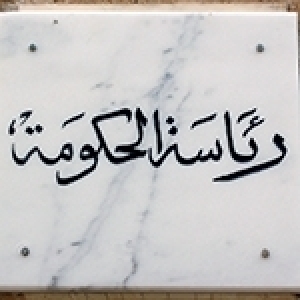 رئَاسَة الحكومَة